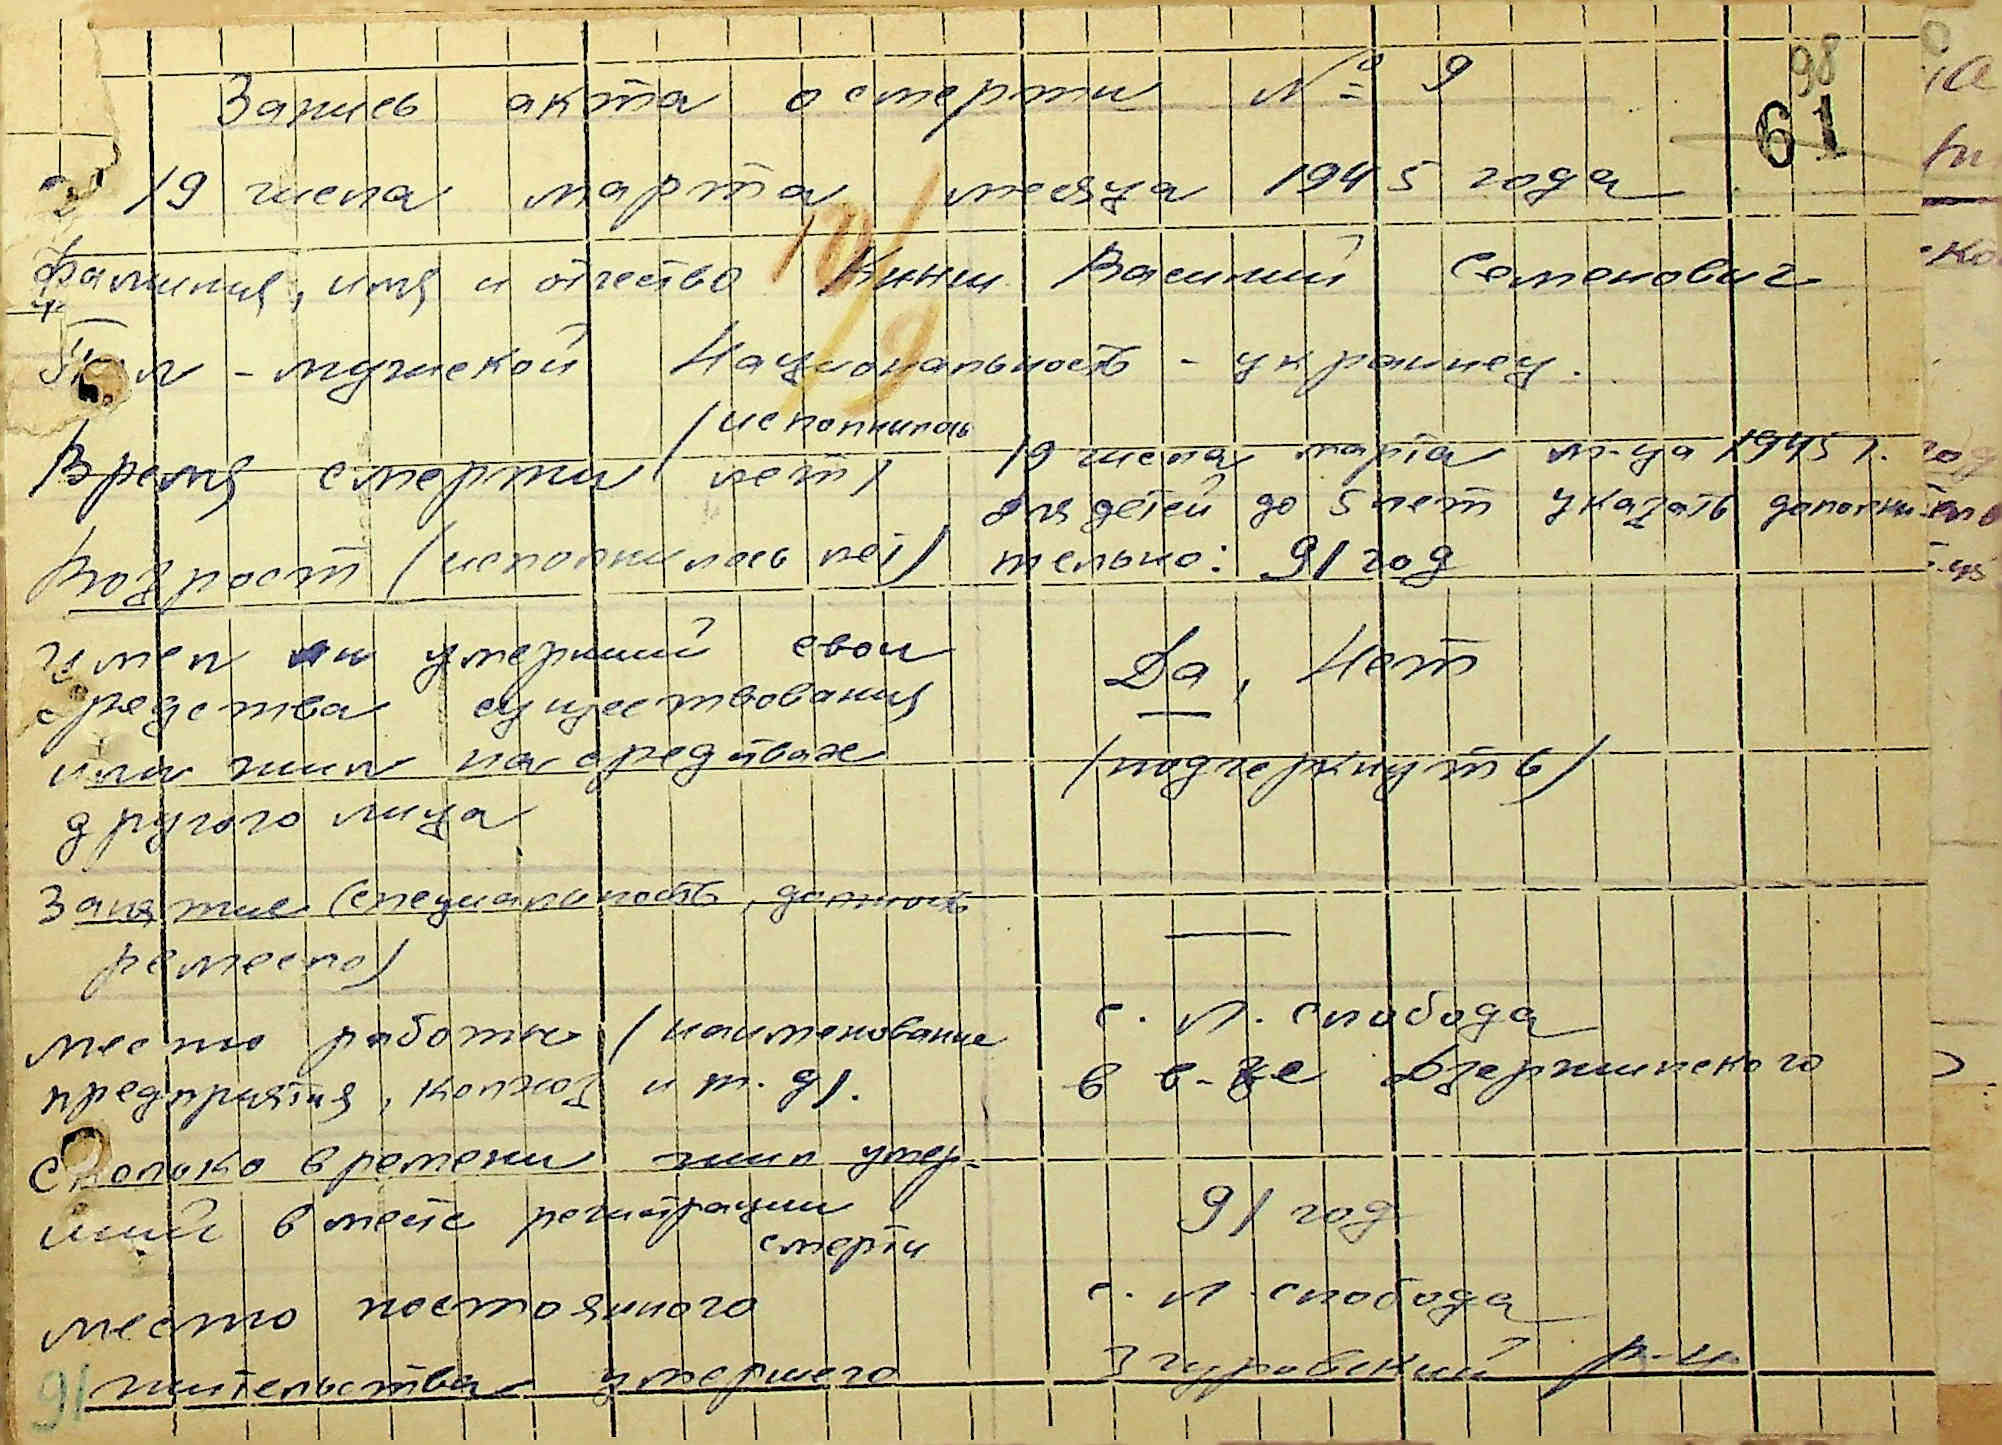 98
61
Запись акта о смерти № 9
19 числа марта месяца 1945 года
Фамилия, имя и отчество Василий Семенович
Пол - мужской Национальность - украинец.
Время смерти (исполнилось лет) 19 числа марта м-ца 1945 г.
Возраст (исполнилось лет) для детей до 5 лет указать дополни
тельно: 91 год
Имел ли умерший свои Да, Нет
средства существования
или жил на средствах (подчеркнуть)
другого лица
Занятие (специальность, должность
ремесло) —
место работы (наименование с. Л. слобода
предприятия, колхоз и т. д). в Дзержинского
Сколько времени жил умер-
ший в месте регистрации 91 год
смерти
место постоянного с. Л. слобода
жительства умершего Згуровский р-н
91